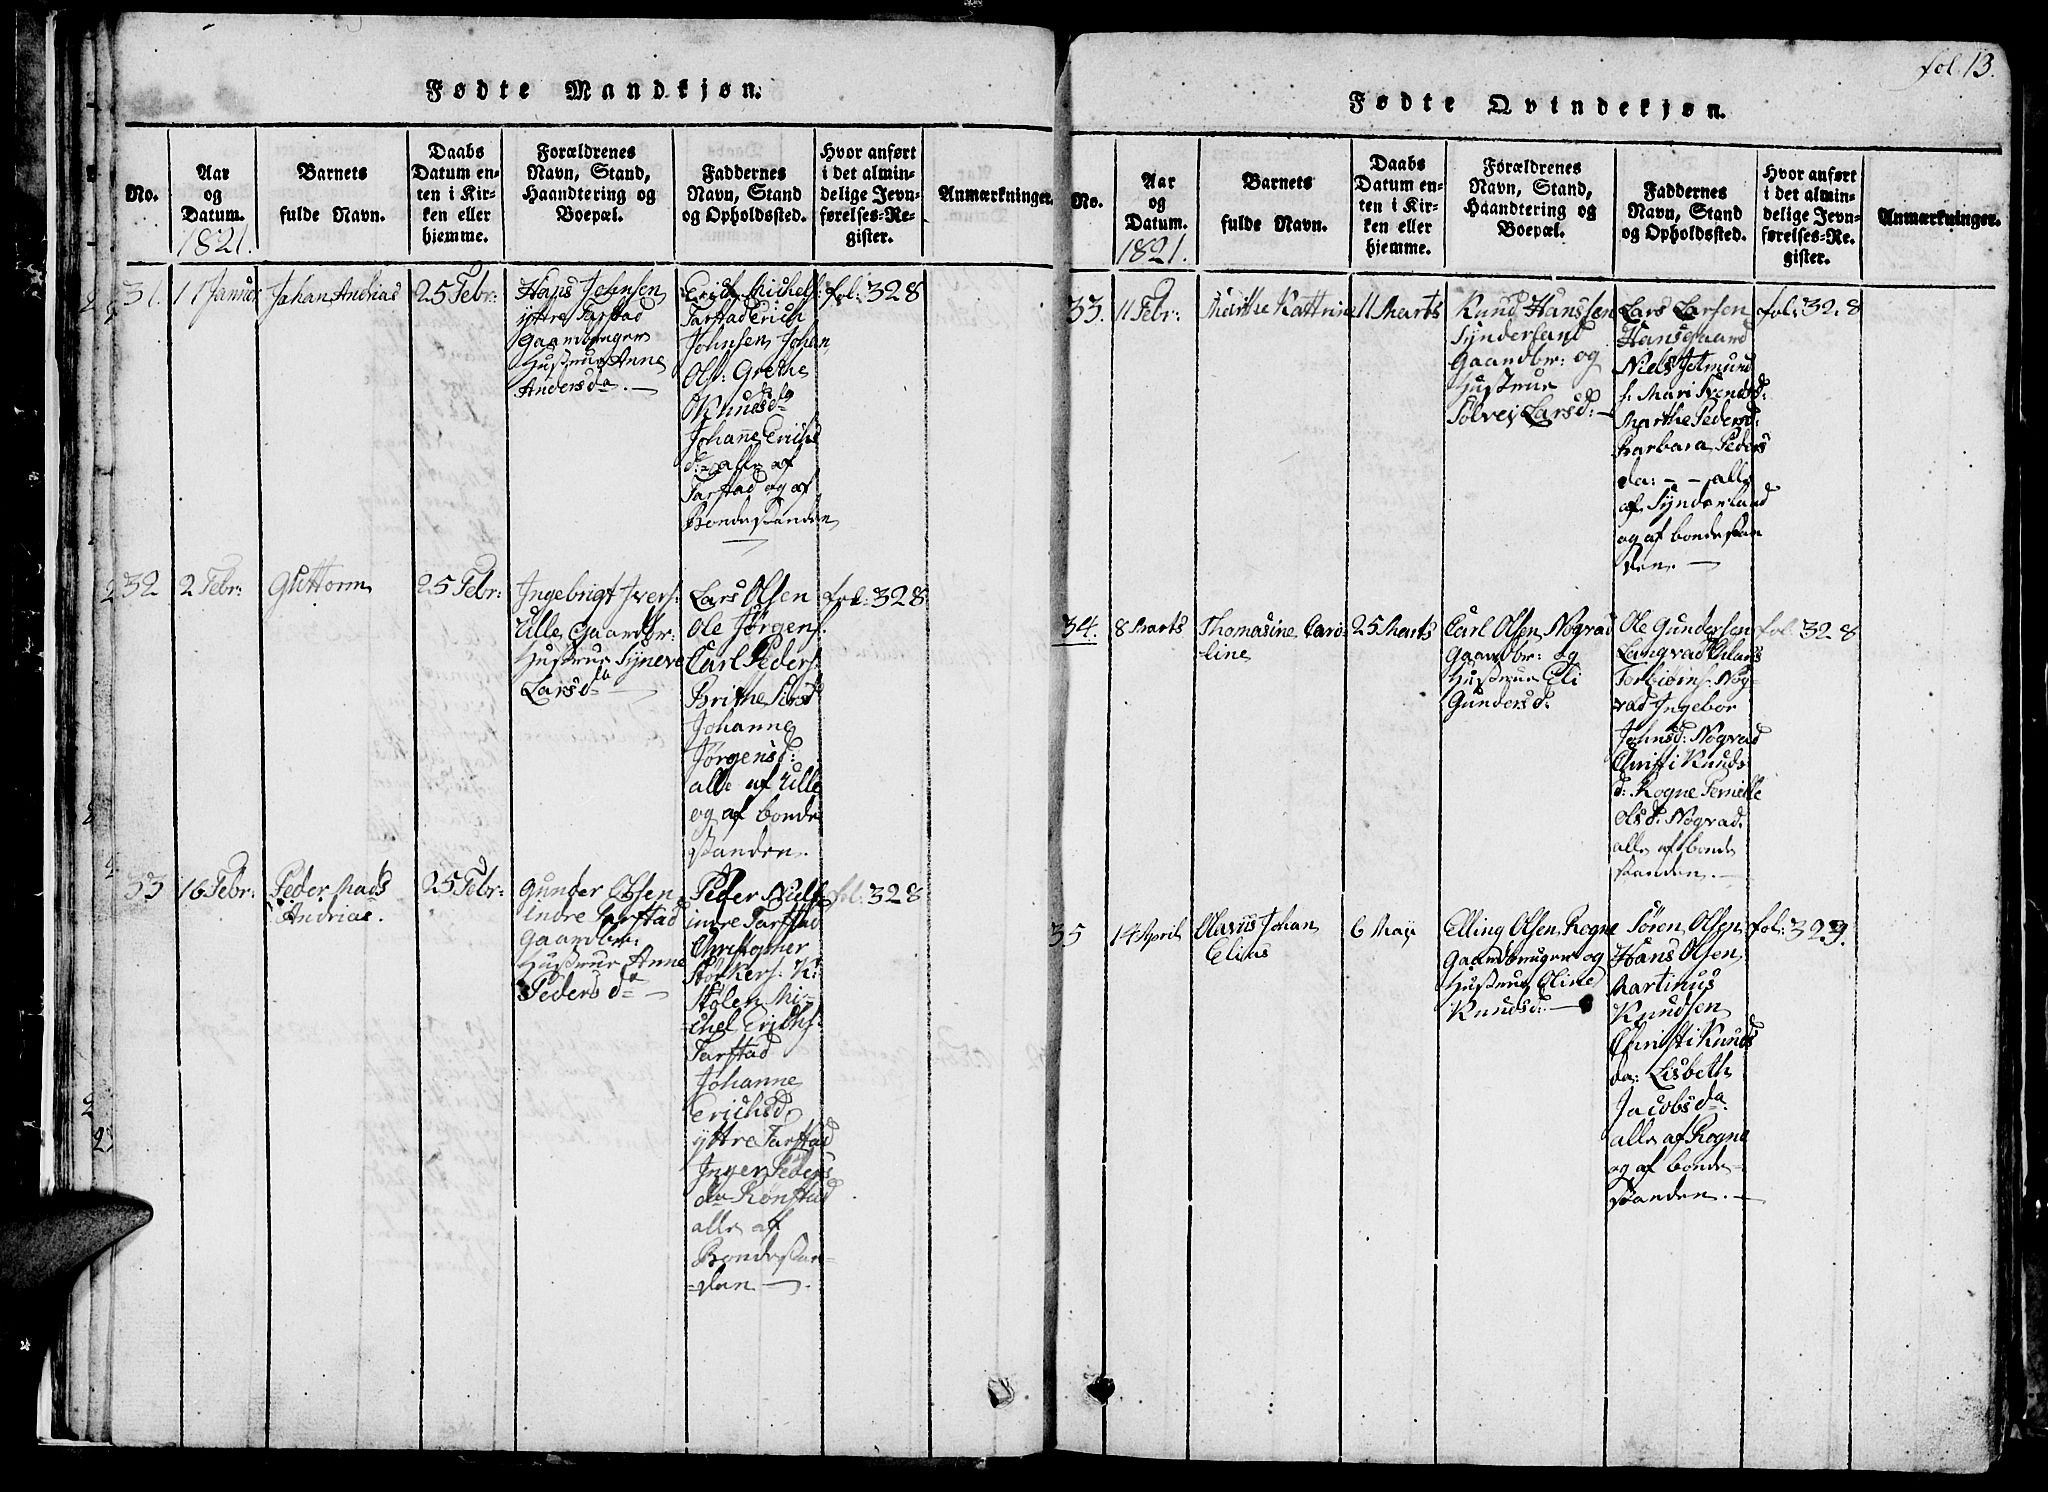 Fødte Mandkjøn.
No.
Aar
og
Datum.
1821.
Barnets
fulde Navn.
Daabs
Datum en-
ten i Kir-
ken eller
hjemme.
Forældrenes
Navn, Stand,
Haandtering og
Boepæl.
Faddernes
Navn, Stand
og Opholdssted.
Hvor anført
i det almin-
delige Jevn-
førelses-Re-
gister.
Anmærkninger.
31.
11 Januar
Johan Andrias
25 Febr:
Hans Johnsen
yttre Tarstad
Gaardbruger
Hustrue Anne
Andersda. —
Erich Michels:
Tarstad Erich
Johnsen, Johan
Ols: Grethe
Knudsda
Johane Erichs
d: alle af
Tarstad og af
Bondestanden
fol: 328
32
2 Febr:
Guttorm
25 Febr:
Ingebrigt Ivers:
Ulle Gaardbr:
Hustrue Syneve
Larsda —
Lars Olsen
Ole Jørgens:
Carl Peders:
Brithe Persd
Johanne
Jørgensd:
alle af Ulle
og af bonde
standen.
fol: 328
33
16 Febr:
Peder Mads
Andrias.
25 Febr:
Gunder Olsen
indre Tarstad
Gaardbr:
Hustrue Anne
Pedersda —
Peder Niels
indre Tarstad
Christopher
Stolen Mi-
chel Erichs:
Tarstad
Johanne
Erichsd
yttre Tarstad
Inger Peders
da Rønstad
alle af
Bondestan-
=den —.
fol: 328
fol. 13.
Fødte Qvindekjøn.
No.
Aar
og
Datum.
1821.
Barnets
fulde Navn.
Daabs
Datum en-
ten i Kir-
ken eller
hjemme.
Forældrenes
Navn, Stand,
Haandtering og
Boepæl.
Faddernes
Navn, Stand
og Opholdssted.
Hvor anført
i det almin-
delige Jevn-
førelses-Re-
gister.
Anmærkninger.
33.
11 Febr:
Marthe Kattrine
11 Marts
Knud Hanssen
Synderland
Gaardbr: og
Hustrue
Solvei Larsd: —
Lars Larsen
Hansgaard
Niels
Marthe Pedersd:
Barbara Peders
da: - - alle
af Synderland
og af bondestan
den. —
fol: 328
34.
8 Marts
Thomasine Caro-
line
25 Marts
Carl Olsen Nogvad
Gaardbr: og
Hustrue Eli
Gundersd.
Ole Gundersen
Langvad
Torbiørns: Nog-
vad Ingebor
Johnsd: Nogvad
Christi Knuds
d: Rogne Pernille
Olsd. Nogvad.
alle af bonde
standen. —
fol. 328
35
14 April
Olavus Johan
Elias
6 Maij
Elling Olsen Rogne
Gaardbruger og
Hustrue Eline
Knudsd: —
Søren Olsen
Hans Olsen
Martinus
Knudsen
Christi Knuds
da: Lisbeth
Jacobsda.
alle af Rogne
og af bonde=
standen. —
fol: 329.